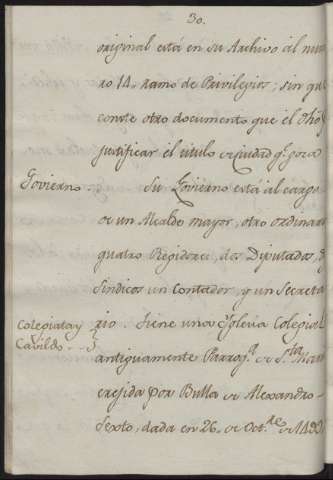 30.
original está en su Archivo al nume
ro 14. ramo de Privilegios; sin que
conste otro documento que el dho
justificar el titulo de Ciudad q.e goza
Govierno. Su Govierno está al cargo
de un Alcalde mayor, otro ordinar
quatro Regidores, dos Diputados,
Sindicos un Contador, y un Secreta
Colegiata y
Cavildo rio. Tiene una Yglesia Colegial
antiguamente Parroq.l de S.ta Maria
erejida por Bulla de Alexandro
Sexto, dada en 26. de Oct.re de 1499